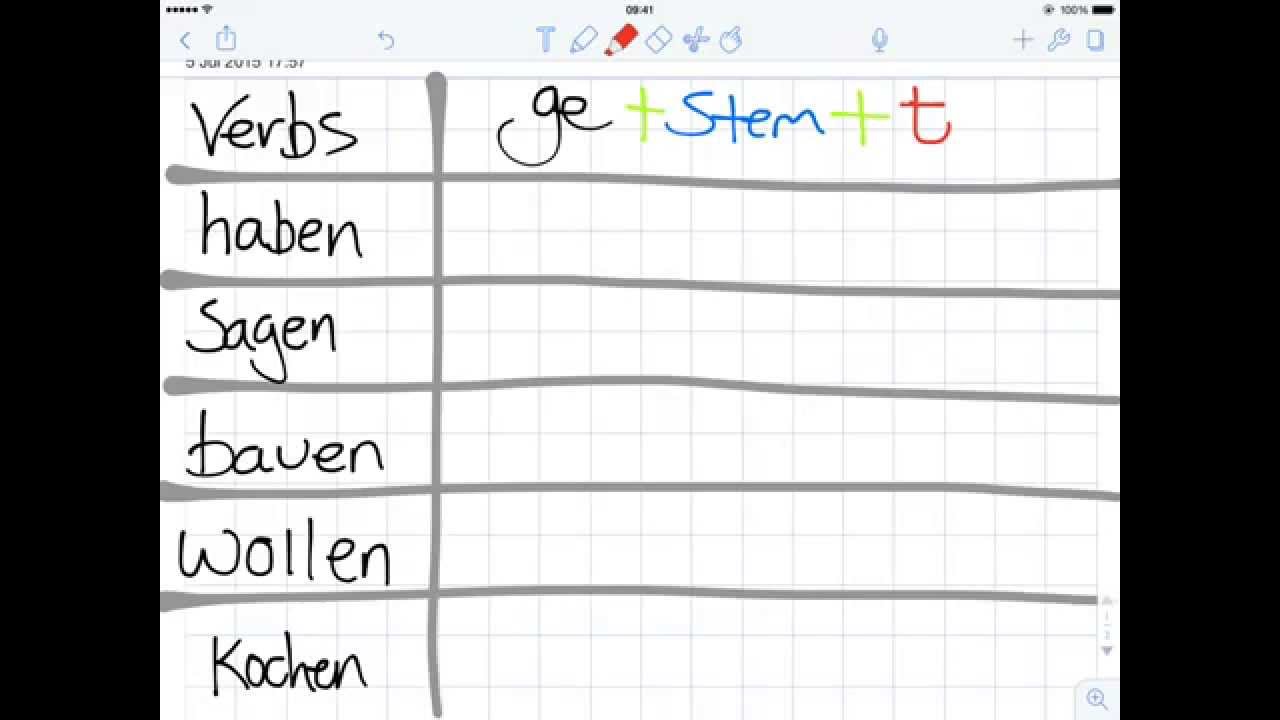 09:41
100%
T
5 Jul 2015 17:57
Verbs ge + Stem + t
haben
Sagen
bauen
Wollen
Kochen